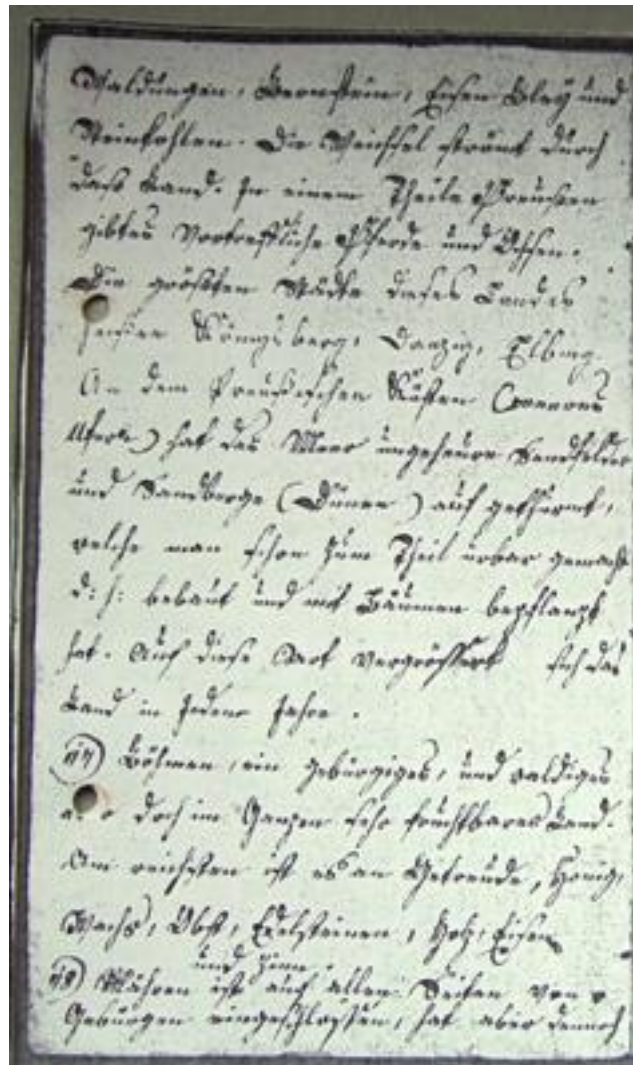 Waldungen, Bernstein, Eisen Bley und
Steinkohlen. Die Weichsel strömt durch
dass Land. In einem Theile Preussen
gibt es Vortreffliche Pferde und Ochsen.
Die größten Städte dieses Landes
heißen Königsberg, Danzig, Elbing.
An dem Preußischen Küsten (Meeres
Ufern) hat das Meer ungeheure Sandfelder
und Sandberge (Dünen) auf gethürmt,
welche man schon zum Theil urbar gemacht
d: h: bebaut und mit Bäumen bepflanzt
hat. Auf diese Art vergrössert sich das
Land in jedem Jahre.
17) Böhmen, ein gebürgiges, und waldiges
doch im Ganzen sehr fruchtbares Land.
Am reichsten ist es an Getreude, Honig,
Wachs, Obst, Edelsteinen, Holz, Eisen
und Zinn.
18) Mähren ist auf allen Seiten von
Gebürgen eingeschlossen, hat aber dennoch